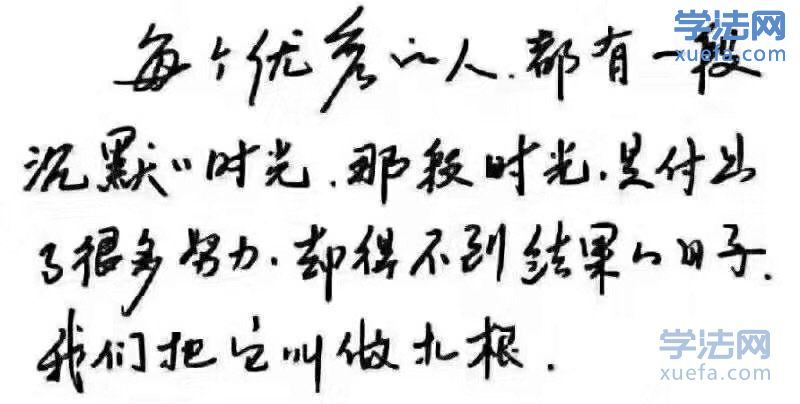 学法网
xuefa.com
每个优秀的人.都有一段
沉默的时光.那段时光.是付出
了很多努力.却得不到结果的日子.
我们把它叫做扎根.
学法网
xuefa.com